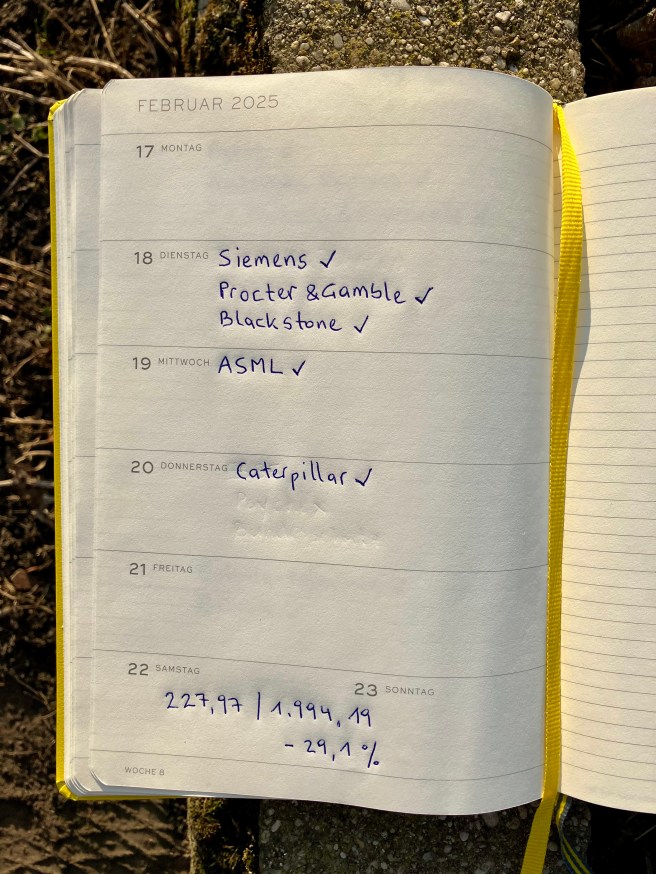 FEBRUAR 2025
17 MONTAG
18 DIENSTAG Siemens ✓
Procter & Gamble ✓
Blackstone ✓
19 MITTWOCH ASML ✓
20 DONNERSTAG Caterpillar ✓
21 FREITAG
22 SAMSTAG
23 SONNTAG
227,97 / 1.994,19
- 29,1 %
WOCHE 8